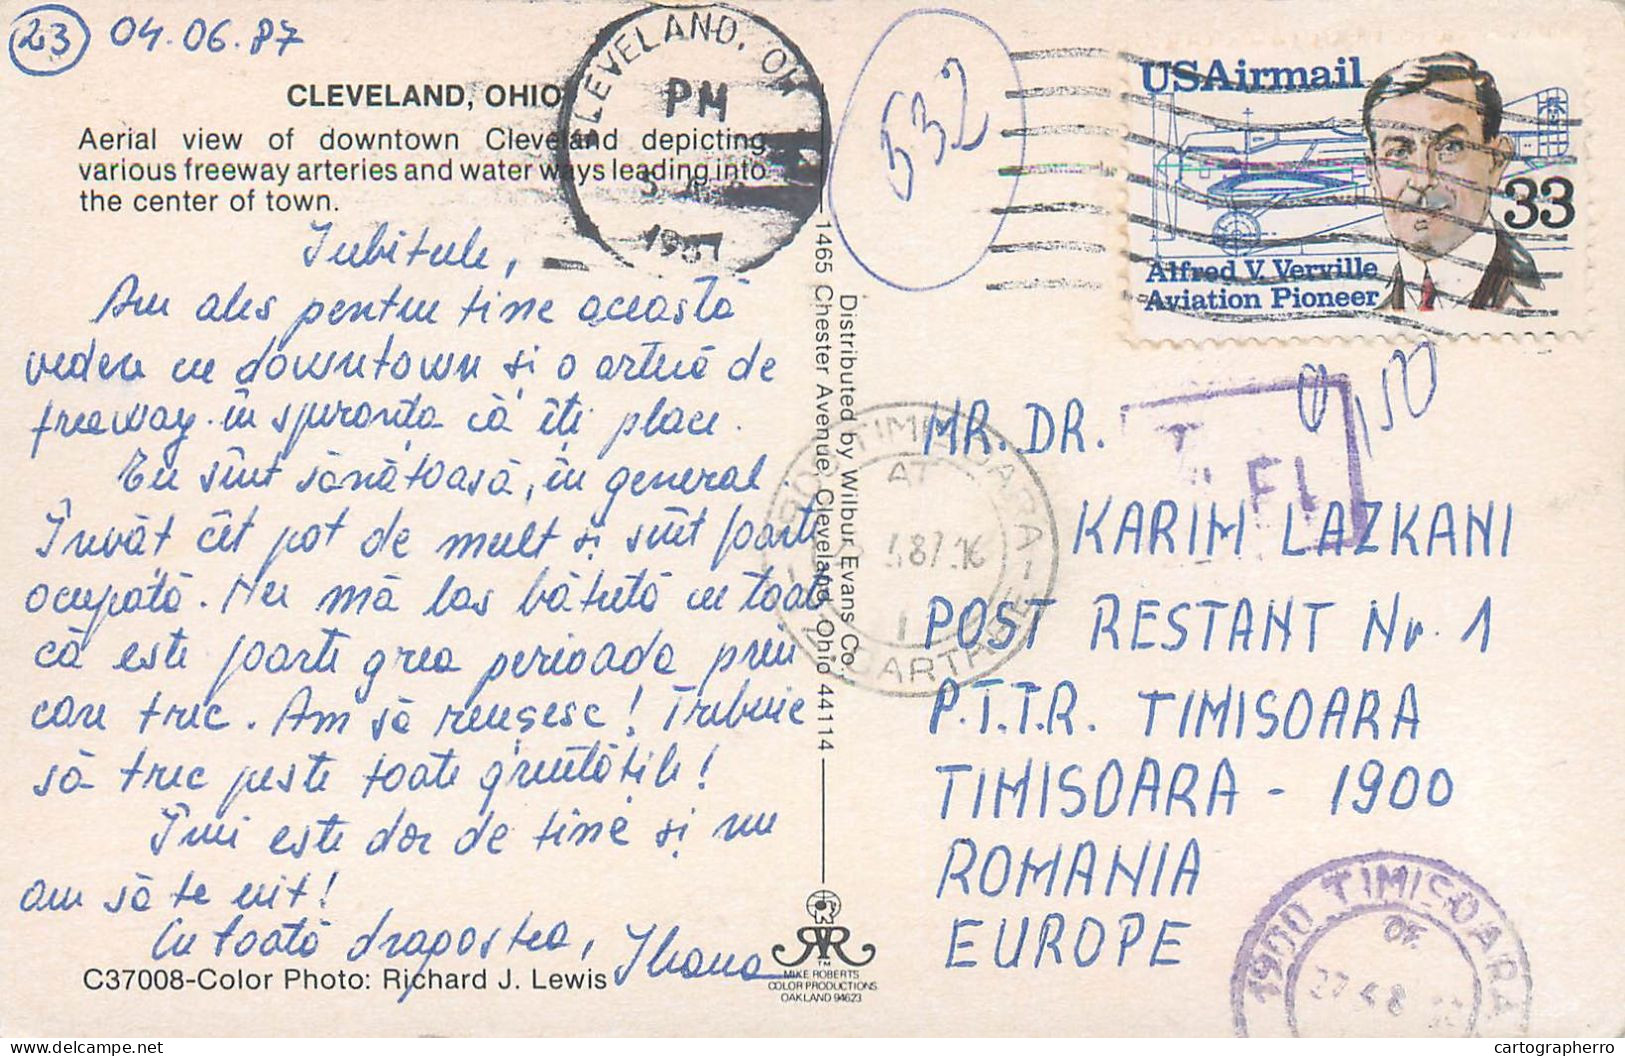 23 04.06.87
CLEVELAND, OHIO
Aerial view of downtown Cleveland depicting
various freeway arteries and water ways leading into
the center of town.
Iubitule,
Am ales pentru tine această
vedere cu downtown și o arteră de
freeway în speranța că îți place.
Eu sînt sănătoasă, în general.
Învăț cît pot de mult și sînt foarte
ocupată. Nu mă las bătută cu toate
că este foarte grea perioada prin
care trec. Am să reușesc! Trebuie
să trec peste toate greutățile!
Îmi este dor de tine și nu
am să te uit!
Cu toată dragostea, Ileana
C37008-Color Photo: Richard J. Lewis
CLEVELAND, OH
PM
1987
532
Distributed by Wilbur Evans Co.
1465 Chester Avenue, Cleveland, Ohio 44114
™
MIKE ROBERTS
COLOR PRODUCTIONS
OAKLAND 94623
USAirmail
33
Alfred V. Verville
Aviation Pioneer
MR. DR.
KARIM LAZKANI
POST RESTANT Nr. 1
P.T.T.R. TIMISOARA
TIMISOARA - 1900
ROMANIA
EUROPE
TIMISOARA
CARTARE
1900 TIMISOARA
OF.
cartographerro